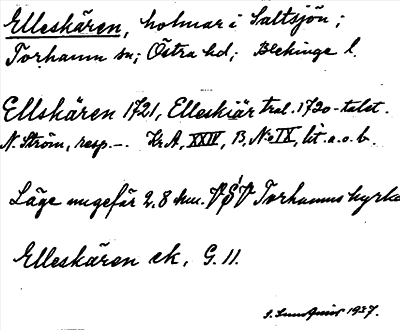 Elleskären, holmar i Saltsjön;
Torhamn sn; Östra hd; Blekinge l.
Ellskären 1721, Elleskiär tral. 1730-talet.
N. Ström, resp. –. Kr.A, XXIV, B, No IX, lit. a. o. b.
Läge ungefär 2.8 km. VSV Torhamns kyrka
Elleskären ek. G. 11.
1937.